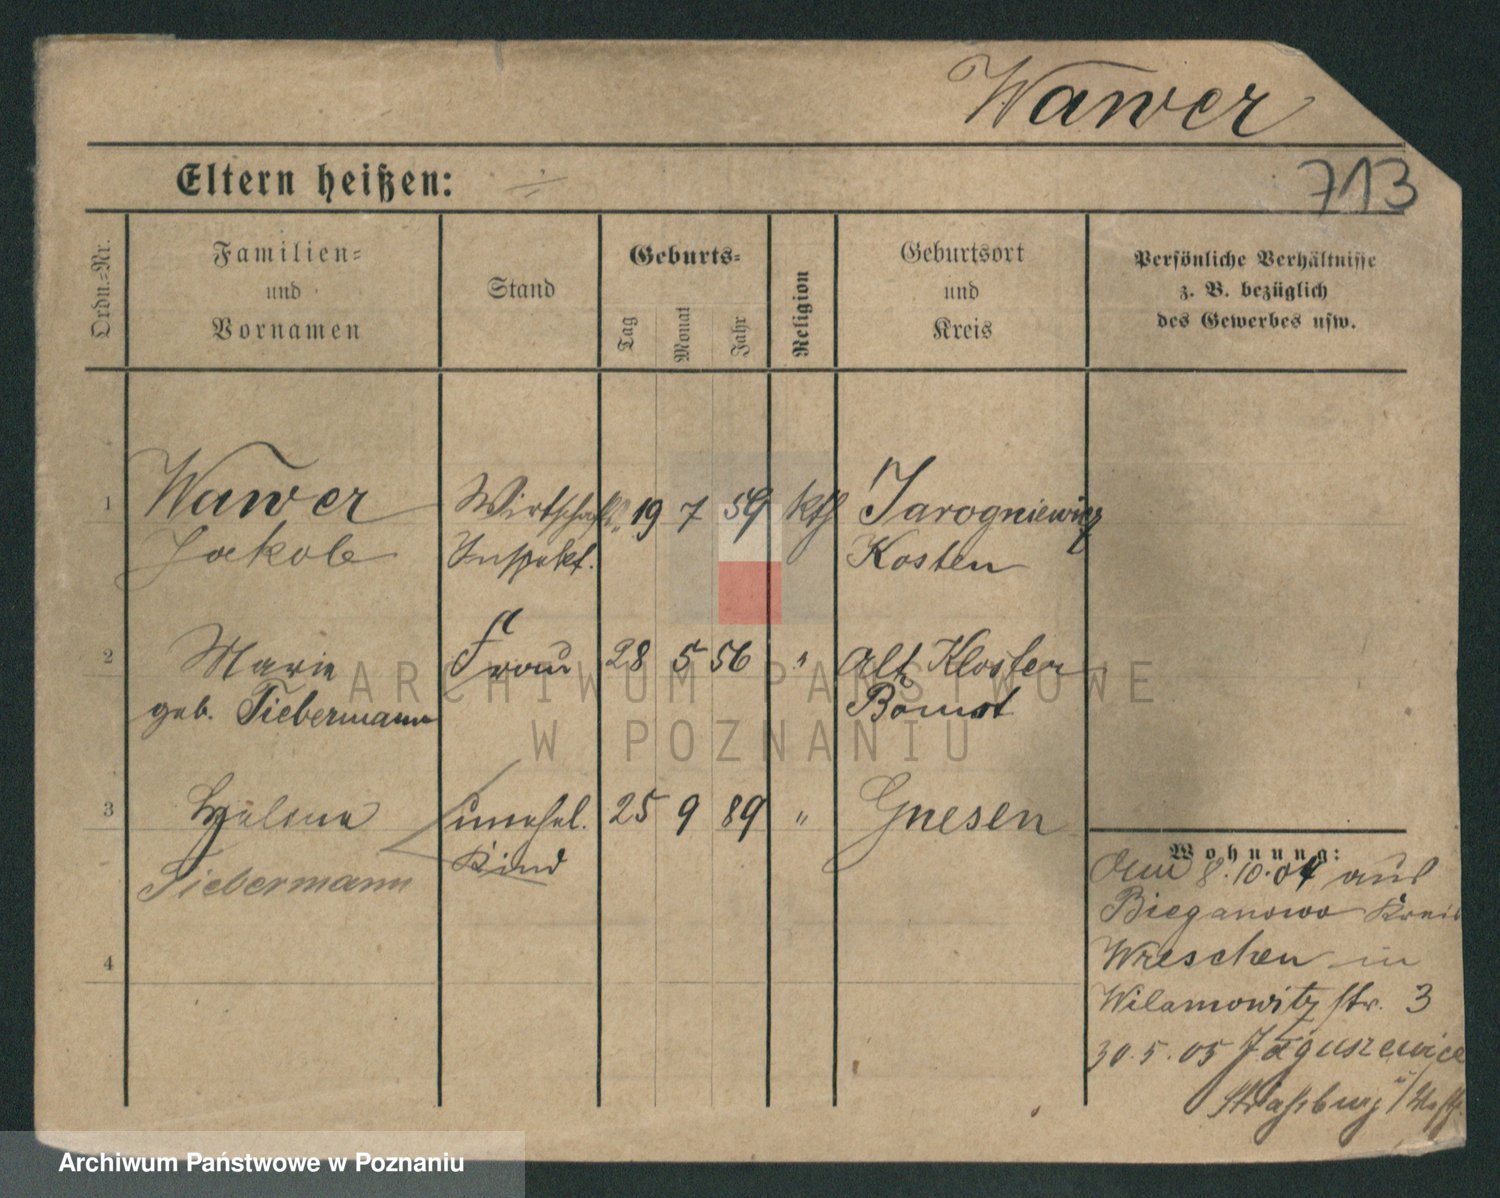 Wawer
713
Eltern heißen:
Ordn.-Nr.
Familien-
und
Vornamen
Stand
Geburts-
Tag
Monat
Jahr
Religion
Geburtsort
und
Kreis
Persönliche Verhältnisse
z. B. bezüglich
des Gewerbes usw.
1 Wawer Wirtschafts- 19 7 59 kth Jarogniewicz
Jakob Inspekt. Kosten
2 Marie Frau 28 5 56 " Alt Kloster
geb. Tiebermann Bomst
3 Helena unehel. 25 9 89 " Gnesen
Tiebermann Kind
4
Wohnung:
Am 8.10.04 aus
Bieganowo Kreis
Wreschen in
Wilamowitz str. 3
30.5.05 Jaguszewice
Straßburg
ARCHIWUM PAŃSTWOWE
W POZNANIU
Archiwum Państwowe w Poznaniu